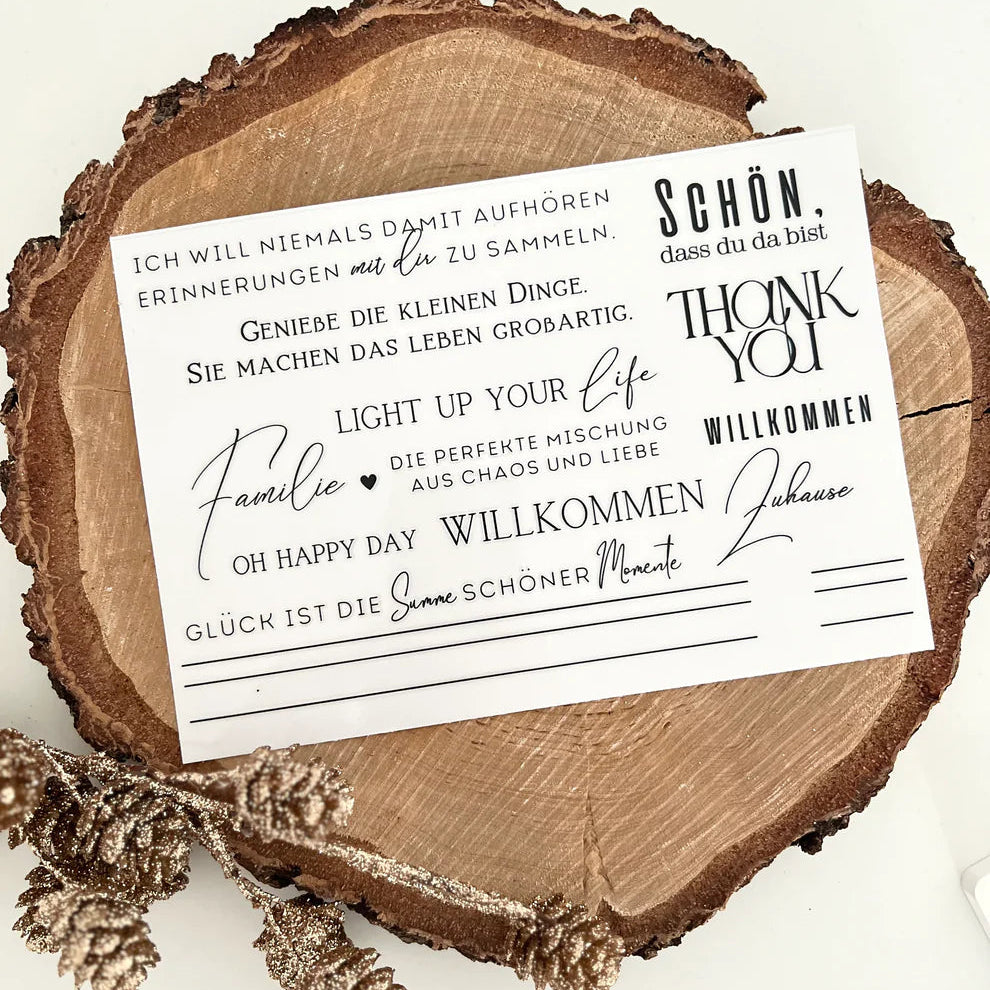 ICH WILL NIEMALS DAMIT AUFHÖREN
ERINNERUNGEN mit dir ZU SAMMELN.
SCHÖN,
dass du da bist
GENIEßE DIE KLEINEN DINGE.
SIE MACHEN DAS LEBEN GROßARTIG.
THANK
YOU
LIGHT UP YOUR Life
WILLKOMMEN
Familie ♥ DIE PERFEKTE MISCHUNG
AUS CHAOS UND LIEBE
OH HAPPY DAY WILLKOMMEN Zuhause
GLÜCK IST DIE Summe SCHÖNER Momente